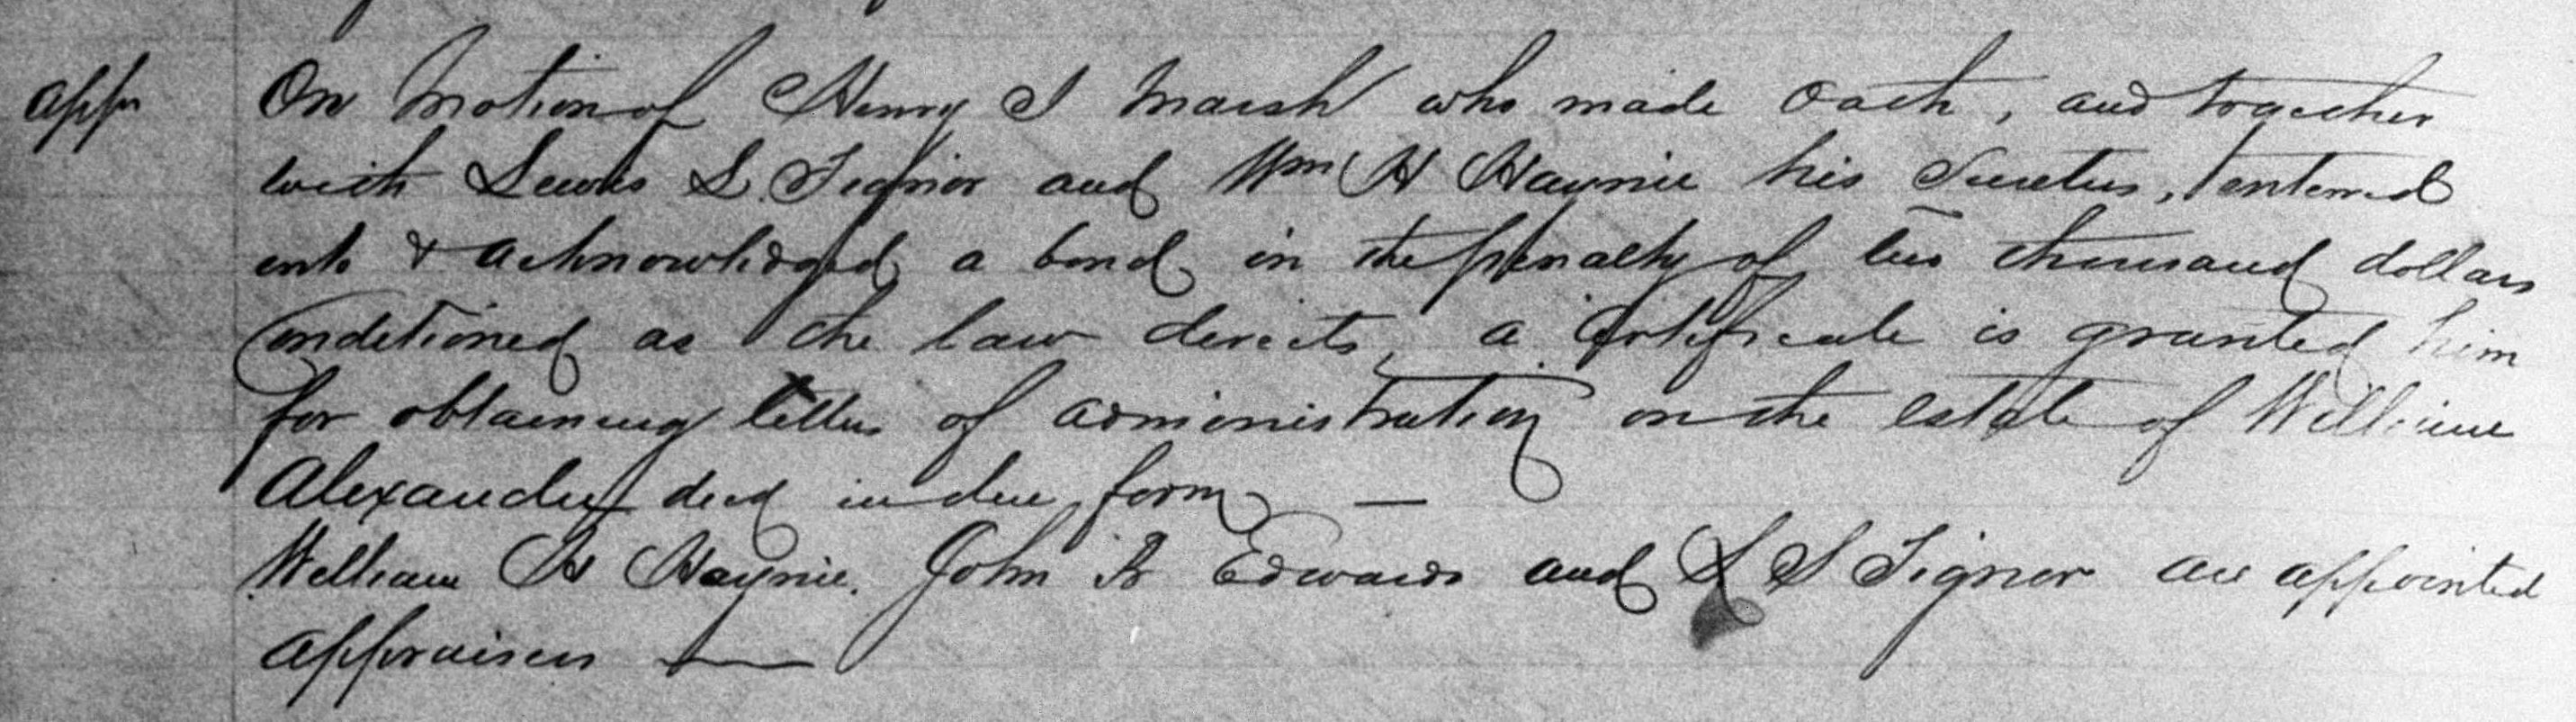 appr On Motion of Henry I Marsh who made Oath, and together
with Lewis L. Tignor and Wm H Haynie his Sureties, entered
into & acknowledged a bond in the penalty of two thousand dollars
Conditioned as the law directs, a Certificate is granted him
for obtaining letters of administration on the estate of William
Alexander decd in due form —
William H Haynie. John R Edwards and L L Tignor are appointed
appraisers —